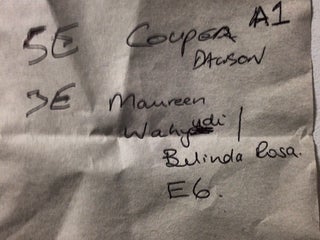 5E COUPER A1
DAWSON
3E Maureen
Wahyudi /
Belinda Rosa.
E6.